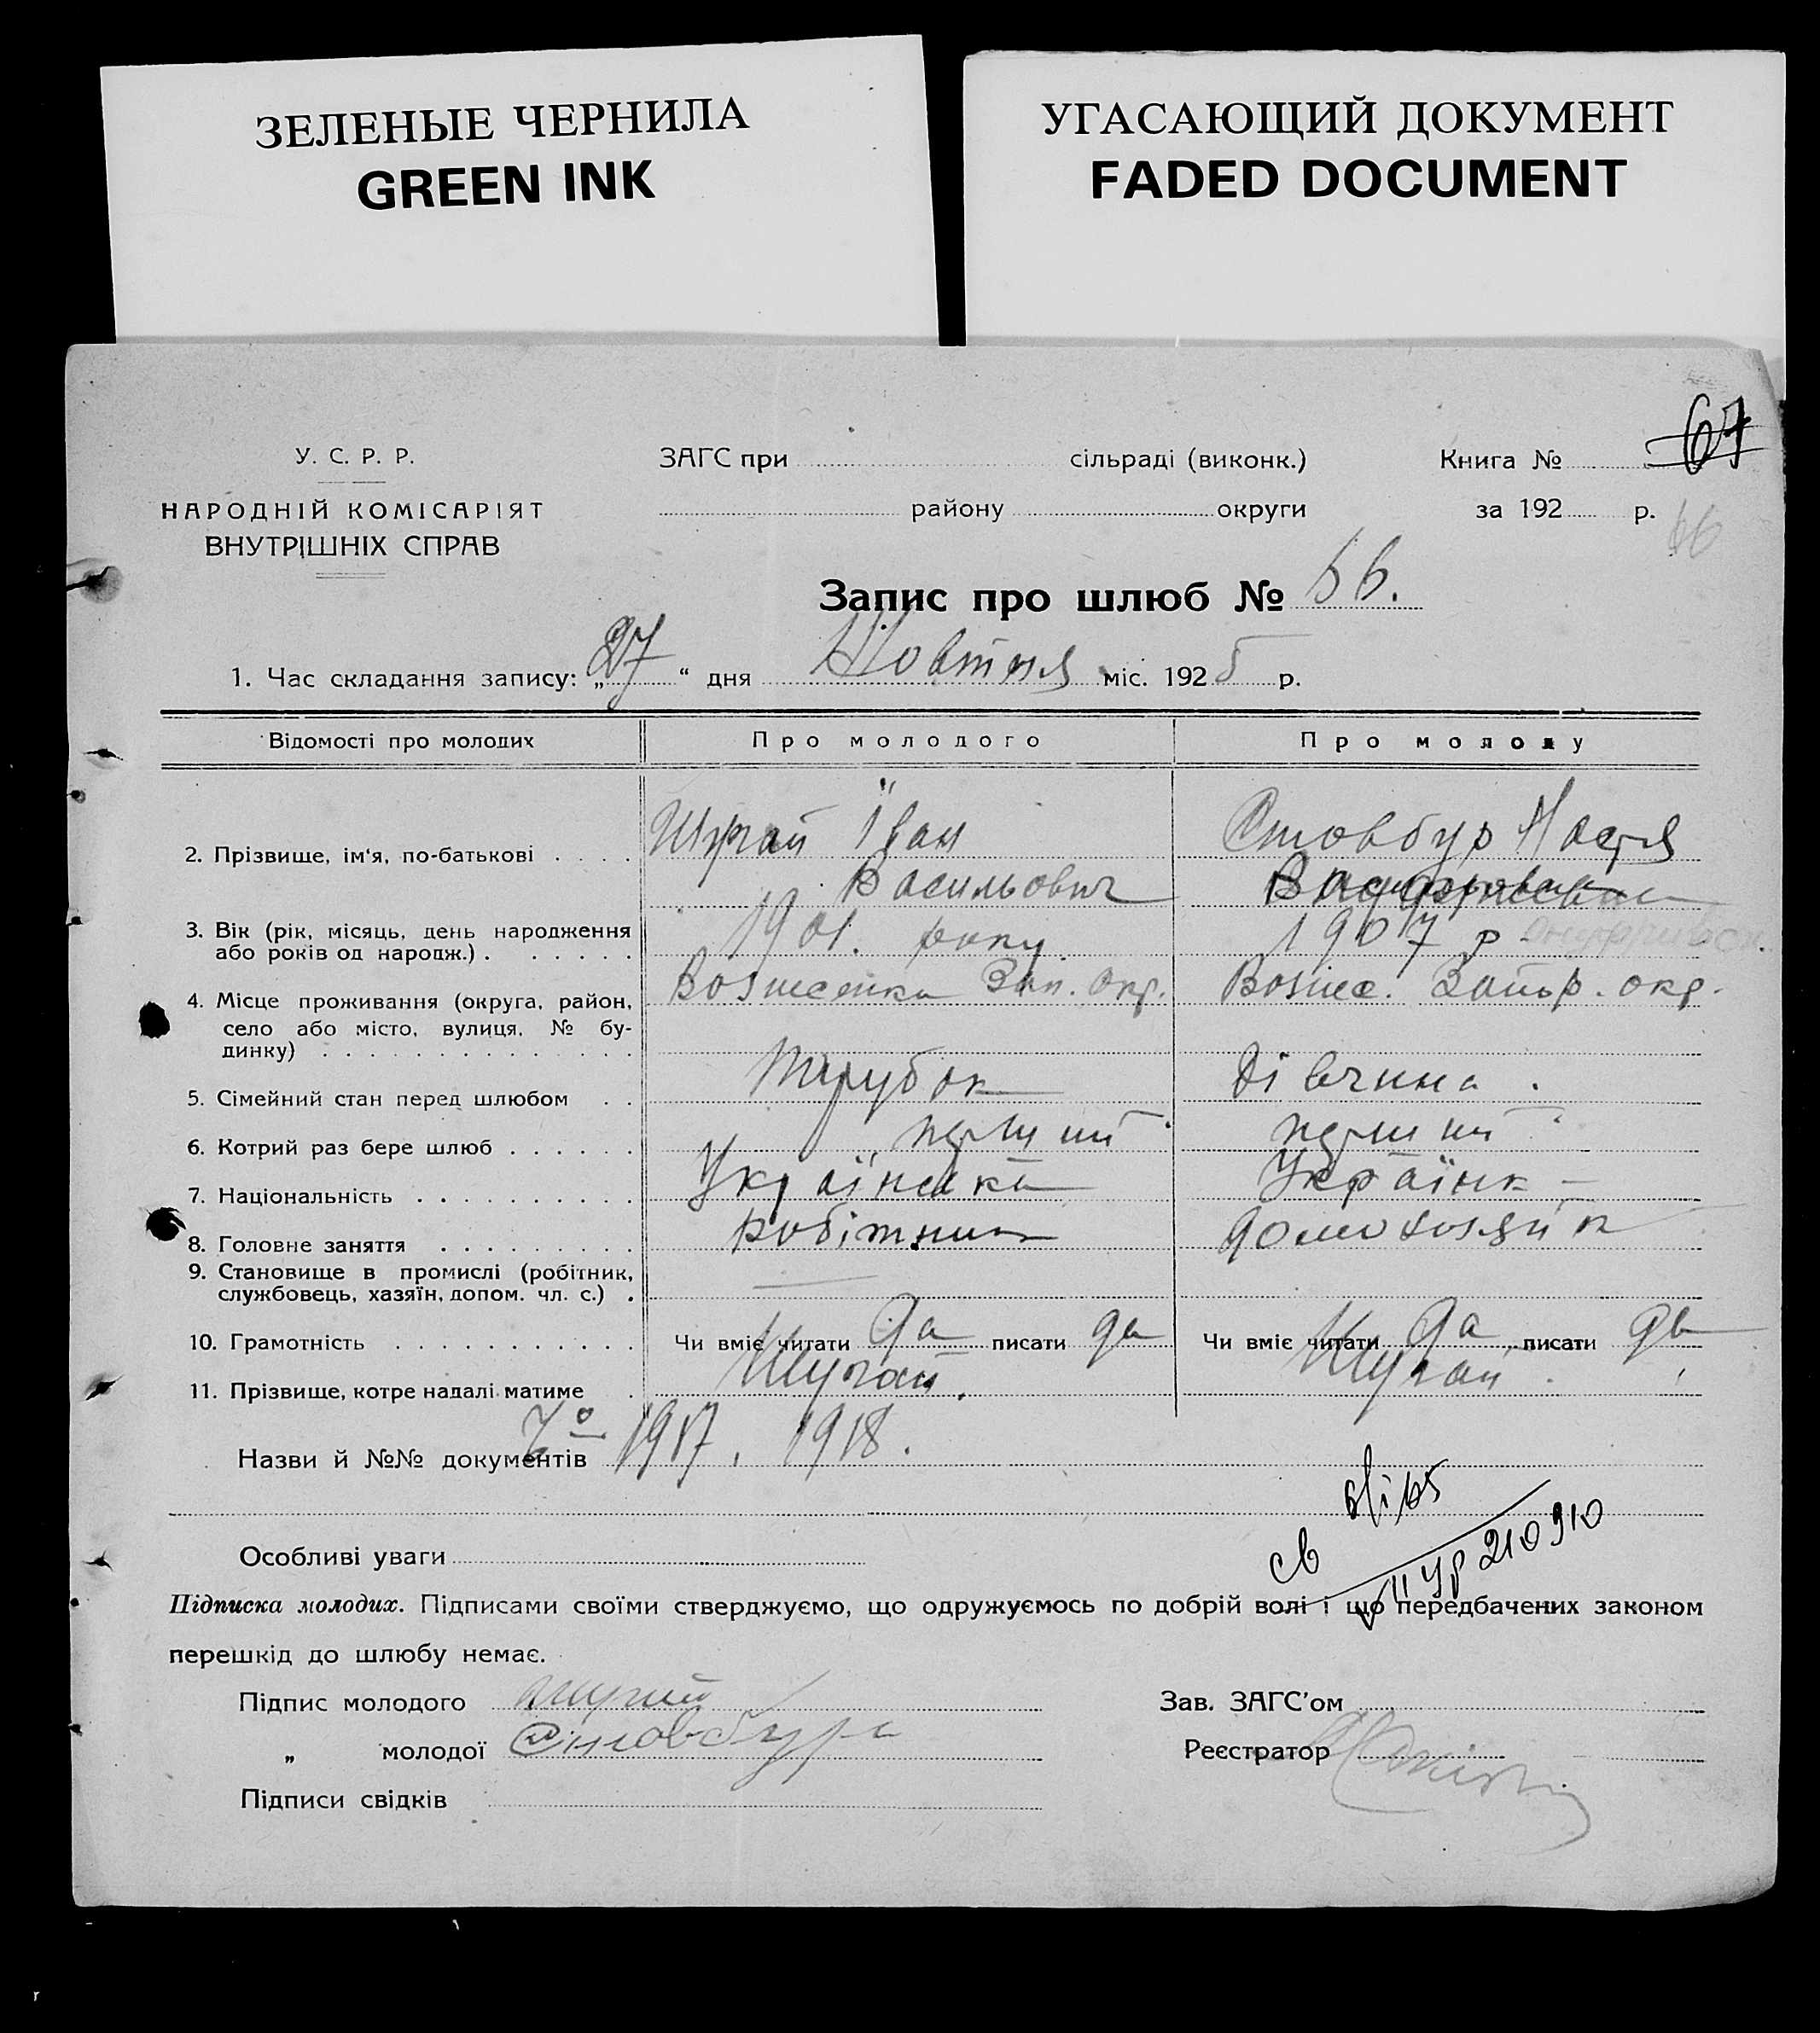 ЗЕЛЕНЫЕ ЧЕРНИЛА
GREEN INK
УГАСАЮЩИЙ ДОКУМЕНТ
FADED DOCUMENT
У. С. Р. Р.
НАРОДНІЙ КОМІСАРІЯТ
ВНУТРІШНІХ СПРАВ
ЗАГС при сільраді (виконк.) Книга № 67
району округи за 192 р.
66
Запис про шлюб № 66.
1. Час складання запису: „27“ дня Жовтня міс. 1925 р.
Відомості про молодих Про молодого Про молоду
2. Прізвище, ім'я, по-батькові . . . . Шугай Іван Стовбур Настя
Васильович
3. Вік (рік, місяць, день народження 1901. року 1907 р
або років од народж.) . . . . . .
4. Місце проживання (округа, район, Вознесенка Зап. Окр. Вознес. Запор. окр.
село або місто, вулиця, № бу-
динку) . . . . . . . . . . . . . .
5. Сімейний стан перед шлюбом . . Парубок Дівчина .
6. Котрий раз бере шлюб . . . . . . перший перший
7. Національність . . . . . . . . . . Українська Українк
8. Головне заняття . . . . . . . . . Робітник домохозяйк
9. Становище в промислі (робітник, —
службовець, хазяїн, допом. чл. с.) .
10. Грамотність . . . . . . . . . . . Чи вміє читати да писати да Чи вміє читати да писати да
11. Прізвище, котре надалі матиме . Шугай. Шугай.
Назви й №№ документів 1917, 1918.
Особливі уваги
св
II УР 210910
Підписка молодих. Підписами своїми стверджуємо, що одружуємось по добрій волі і що передбачених законом
перешкід до шлюбу немає.
Підпис молодого Шугай Зав. ЗАГС'ом
„ молодої Стовбур Реєстратор
Підписи свідків